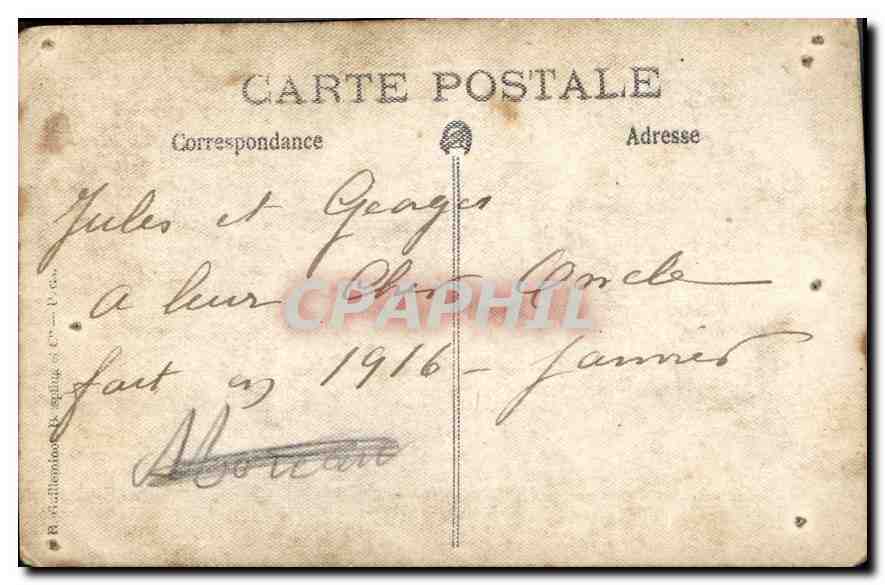 CARTE POSTALE
Correspondance
Adresse
Jules et Georges
a leur Cher Oncle
CPAPHIL
fait en 1916 - Janvier
R. Guilleminot, Bœspflug et Cie — Paris